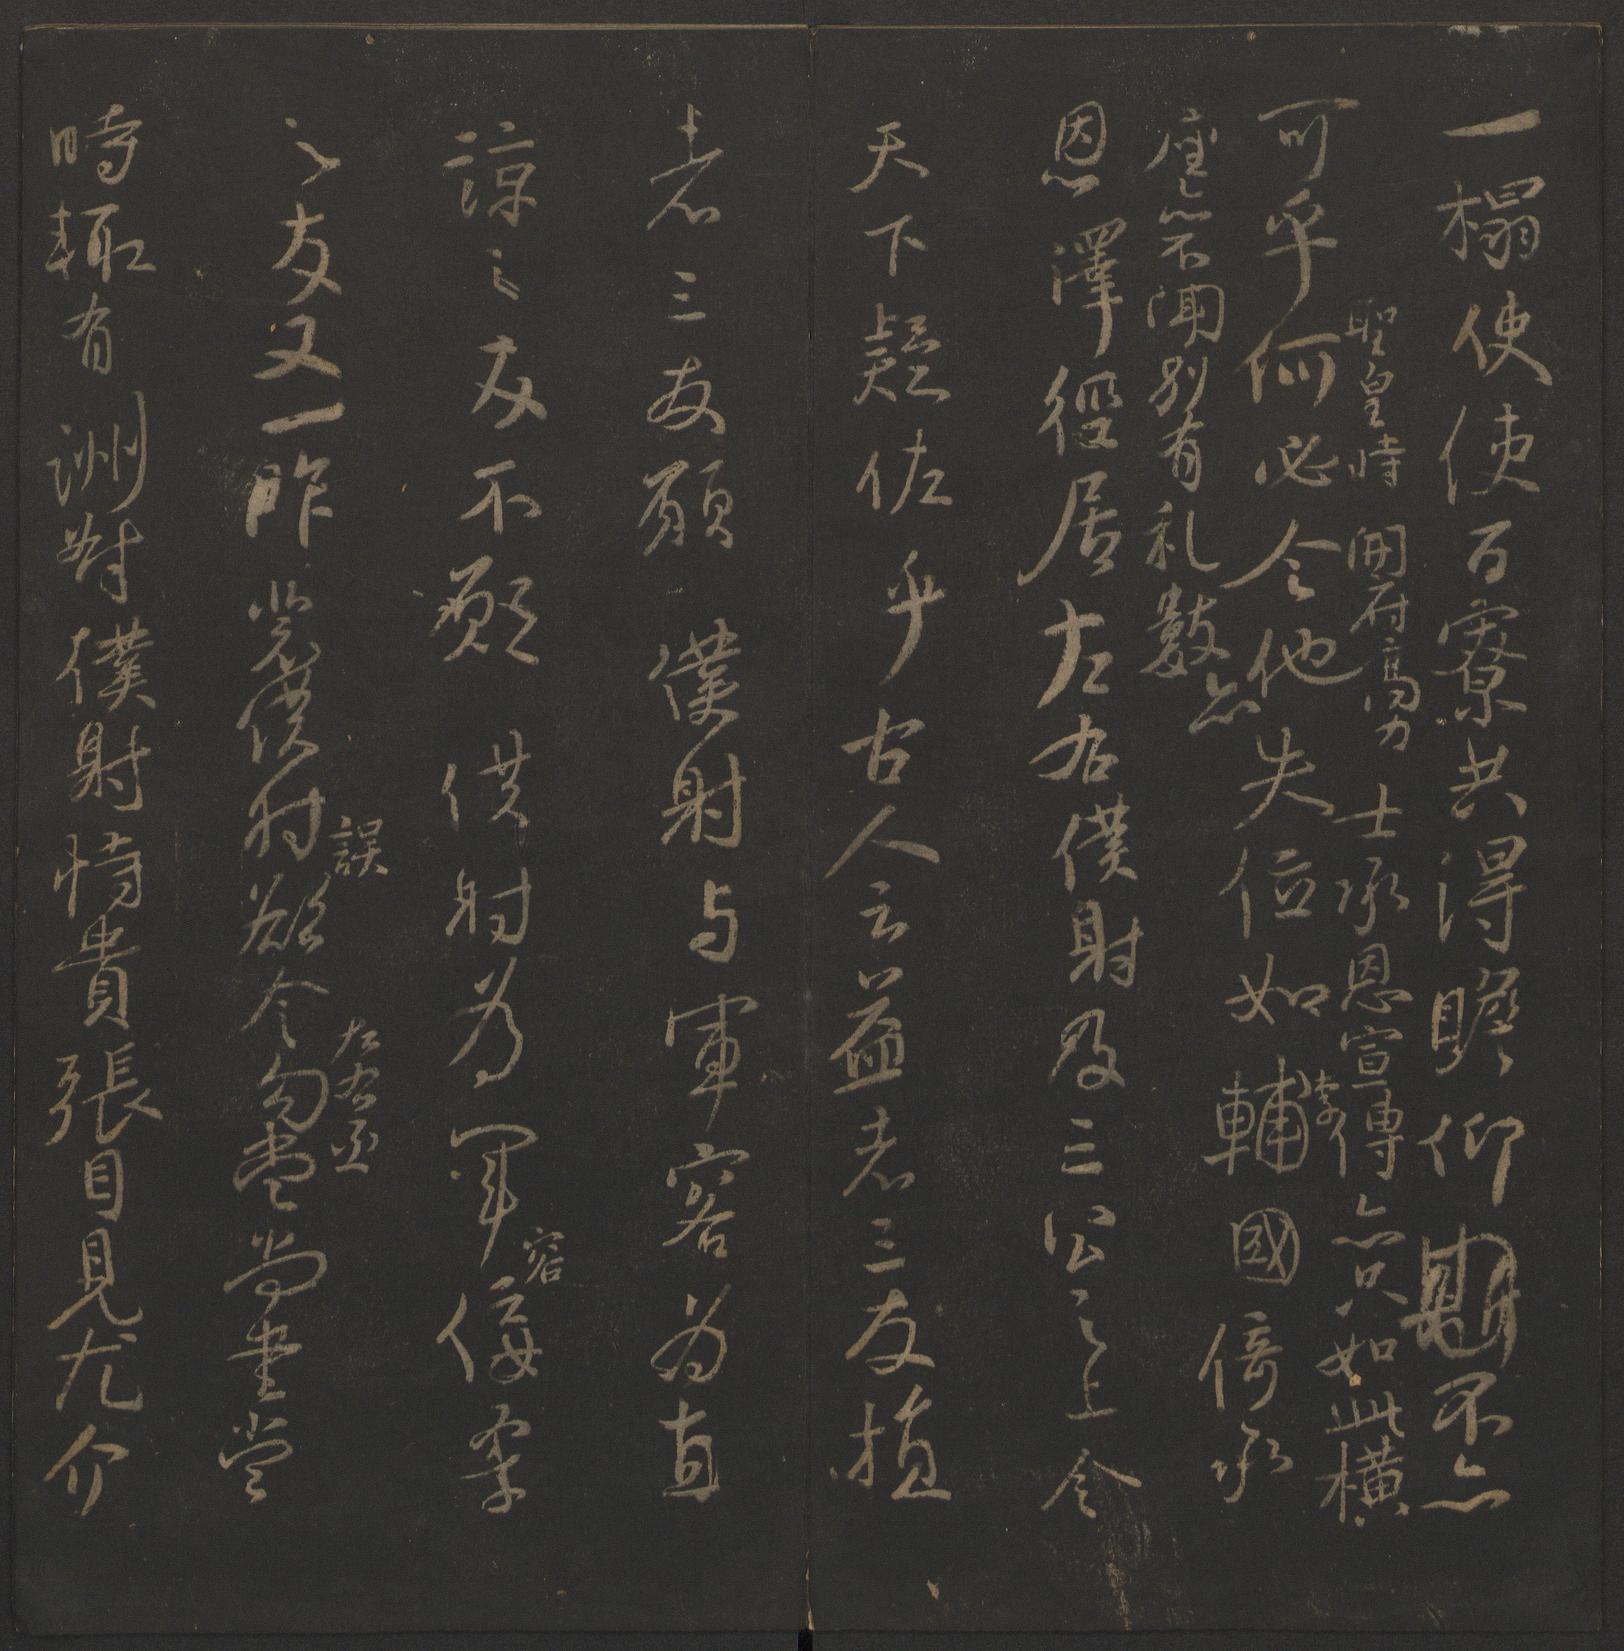 一榻使使百寮共得瞻仰不亦
聖皇時開府高力士承恩宣傳亦只如此橫
可乎何必令他失位如李輔國倚承
座亦不聞別有礼數亦
恩澤徑居左右僕射及三公之上令
天下疑恠乎古人云益者三友損
者三友願僕射与軍容為直
諒之友不願僕射為軍容佞柔
之友又一昨裴僕射誤欲令左右丞勾當尚書當
時輒有詶對僕射恃貴張目見尤介